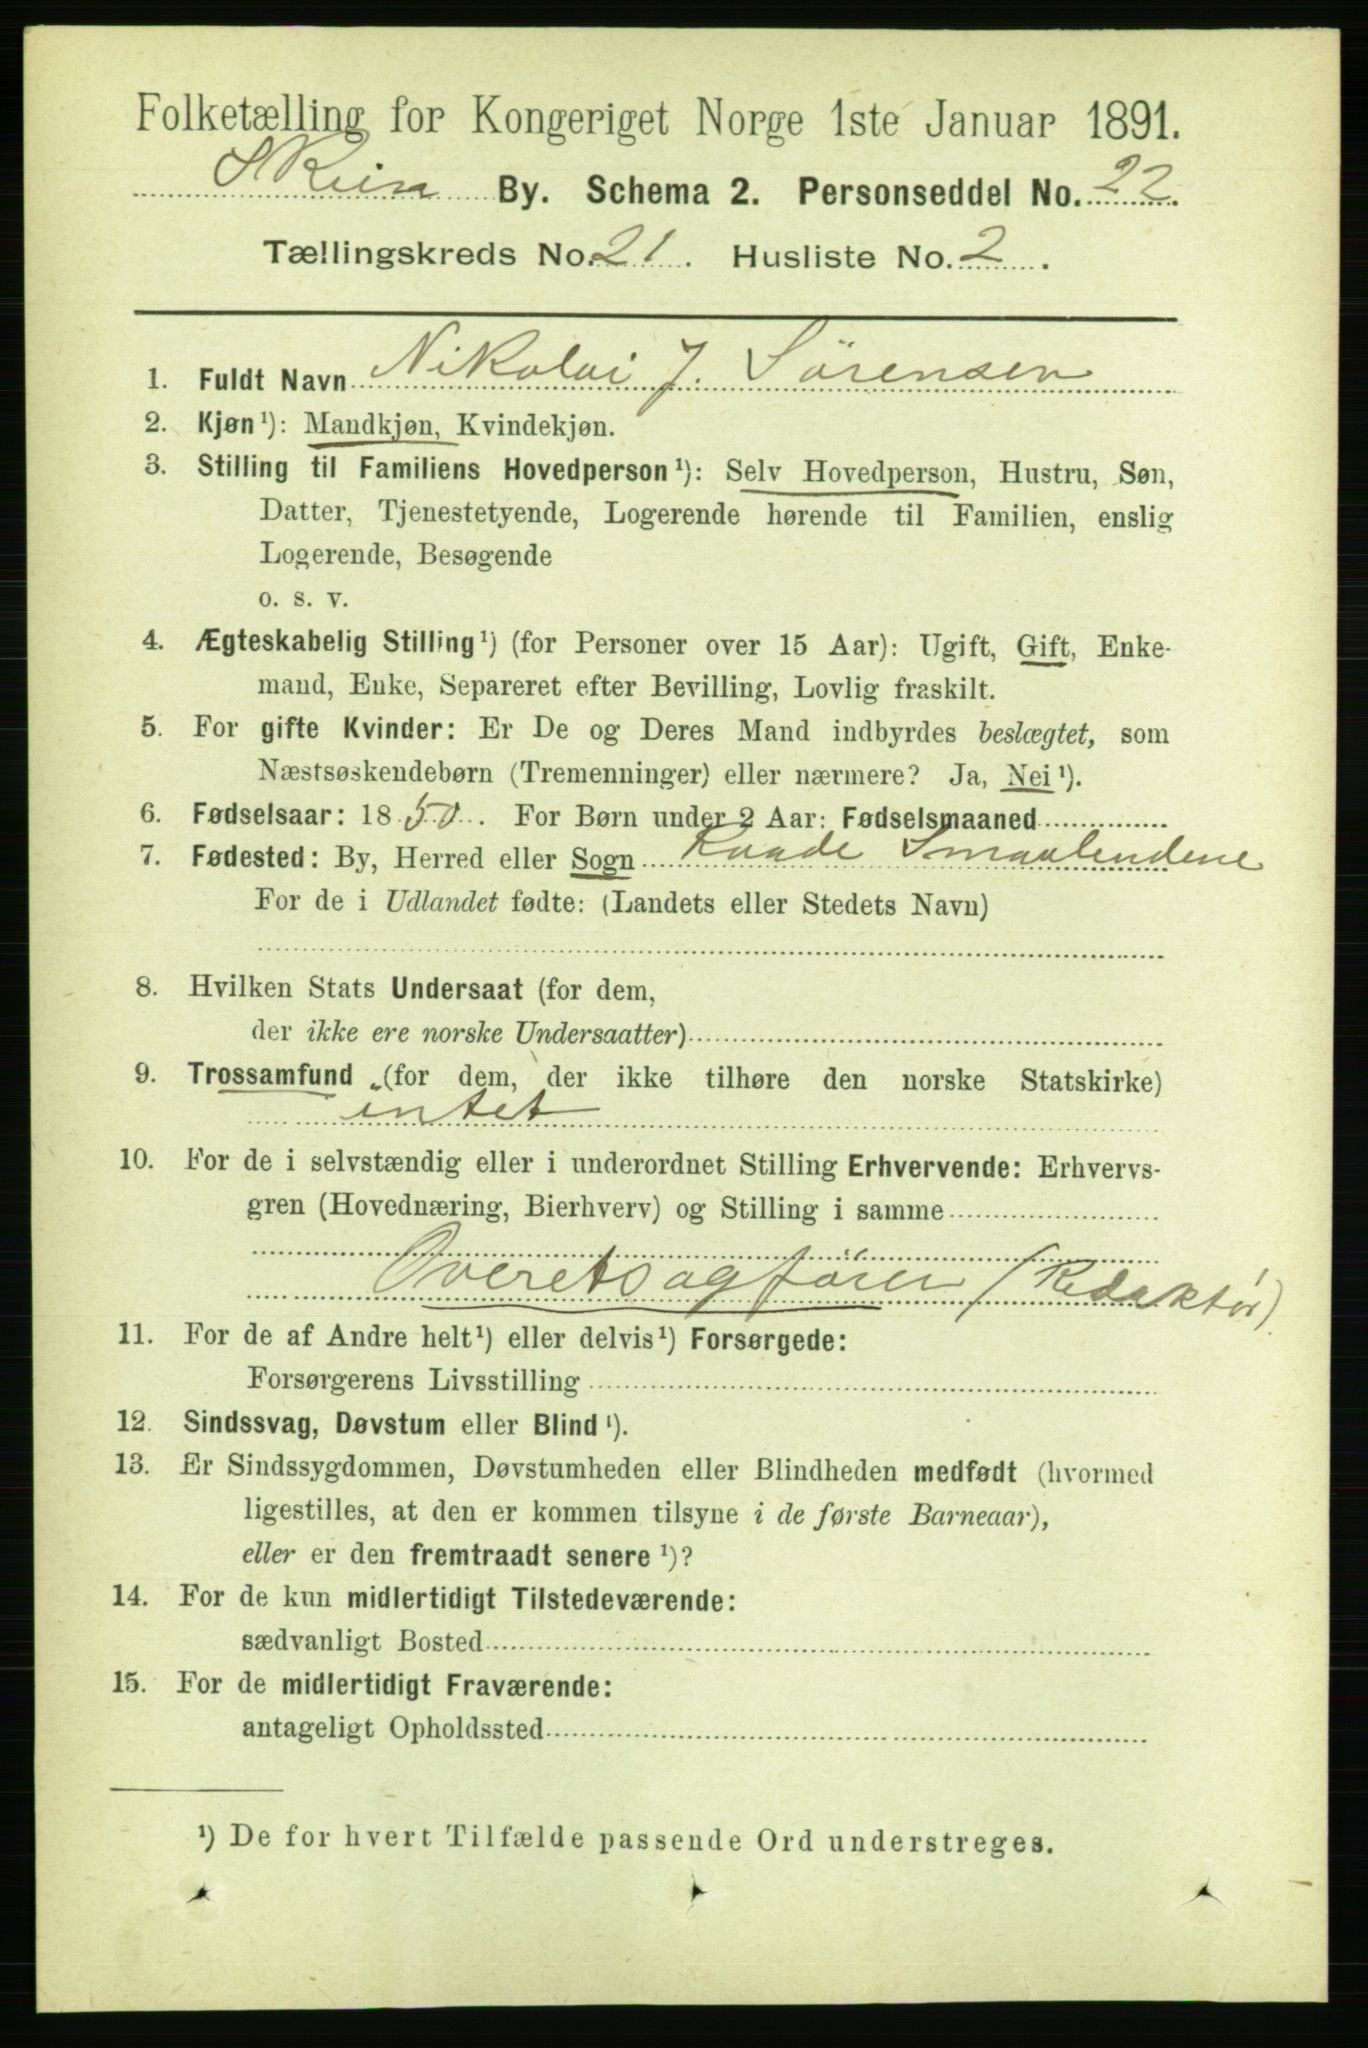 Folketælling for Kongeriget Norge 1ste Januar 1891.
Skien By. Schema 2. Personseddel No. 22.
Tællingskreds No. 21. Husliste No. 2.
1. Fuldt Navn Nikolai J. Sörensen
2. Kjøn¹): Mandkjøn, Kvindekjøn.
3. Stilling til Familiens Hovedperson¹): Selv Hovedperson, Hustru, Søn,
Datter, Tjenestetyende, Logerende hørende til Familien, enslig
Logerende, Besøgende
o. s. v.
4. Ægteskabelig Stilling¹) (for Personer over 15 Aar): Ugift, Gift, Enke-
mand, Enke, Separeret efter Bevilling, Lovlig fraskilt.
5. For gifte Kvinder: Er De og Deres Mand indbyrdes beslægtet, som
Næstsøskendebørn (Tremenninger) eller nærmere? Ja, Nei¹).
6. Fødselsaar: 1850. For Børn under 2 Aar: Fødselsmaaned
7. Fødested: By, Herred eller Sogn Raade Smaalendene
For de i Udlandet fødte: (Landets eller Stedets Navn)
8. Hvilken Stats Undersaat (for dem,
der ikke ere norske Undersaatter)
9. Trossamfund (for dem, der ikke tilhøre den norske Statskirke)
intet
10. For de i selvstændig eller i underordnet Stilling Erhvervende: Erhvervs-
gren (Hovednæring, Bierhverv) og Stilling i samme
Overetsagförer (Redaktör)
11. For de af Andre helt¹) eller delvis¹) Forsørgede:
Forsørgerens Livsstilling
12. Sindssvag, Døvstum eller Blind¹).
13. Er Sindssygdommen, Døvstumheden eller Blindheden medfødt (hvormed
ligestilles, at den er kommen tilsyne i de første Barneaar),
eller er den fremtraadt senere¹)?
14. For de kun midlertidigt Tilstedeværende:
sædvanligt Bosted
15. For de midlertidigt Fraværende:
antageligt Opholdssted
¹) De for hvert Tilfælde passende Ord understreges.